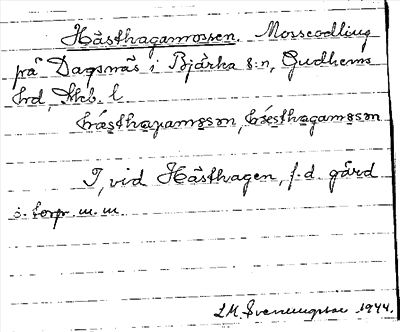 Hästhagamossen. Mosseodling
på Dagsnäs i Bjärka s:n, Gudhems
hrd, Skb. l.
hästhagamossen, hästhagamossen
I, vid Hästhagen, f.d. gård
o. torp m.m.
Svenungsson 1944.